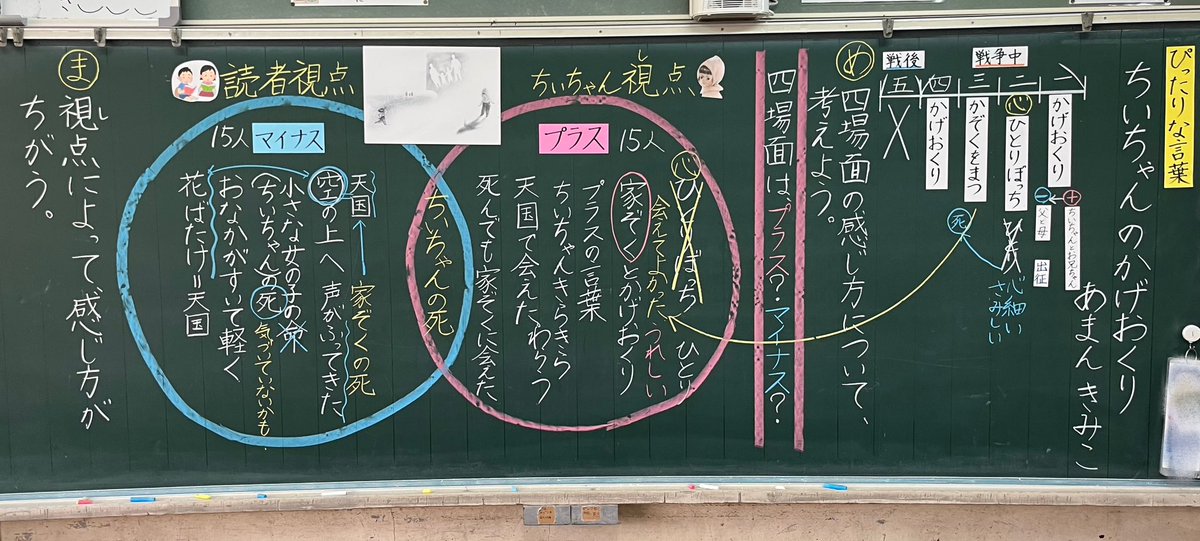 ぴったりな言葉
ちいちゃんのかげおくり
あまんきみこ
戦争中
戦後
一
かげおくり
⊕
ちいちゃんとお兄ちゃん
⊖
父と母
出征
二
心
ひとりぼっち
心細い
さみしい
三
かぞくをまつ
死
四
かげおくり
五
め
四場面の感じ方について、
考えよう。
四場面は、プラス?・マイナス?
ちいちゃん視点
し
プラス
15人
心
ひとりぼっち
ひとり
会えてよかった
うれしい
家ぞくとかげおくり
プラスの言葉
ちいちゃんきらきら
天国で会えた、わらう
死んでも家ぞくに会えた、
ちいちゃんの死
読者視点
15人
マイナス
天国
家ぞくの死
空の上へ
声がふってきた
小さな女の子の命
(ちいちゃん)の死
気づいていないかも
おなかがすいて軽く
花ばたけ=天国
ま
視点によって、感じ方が
し
ちがう。